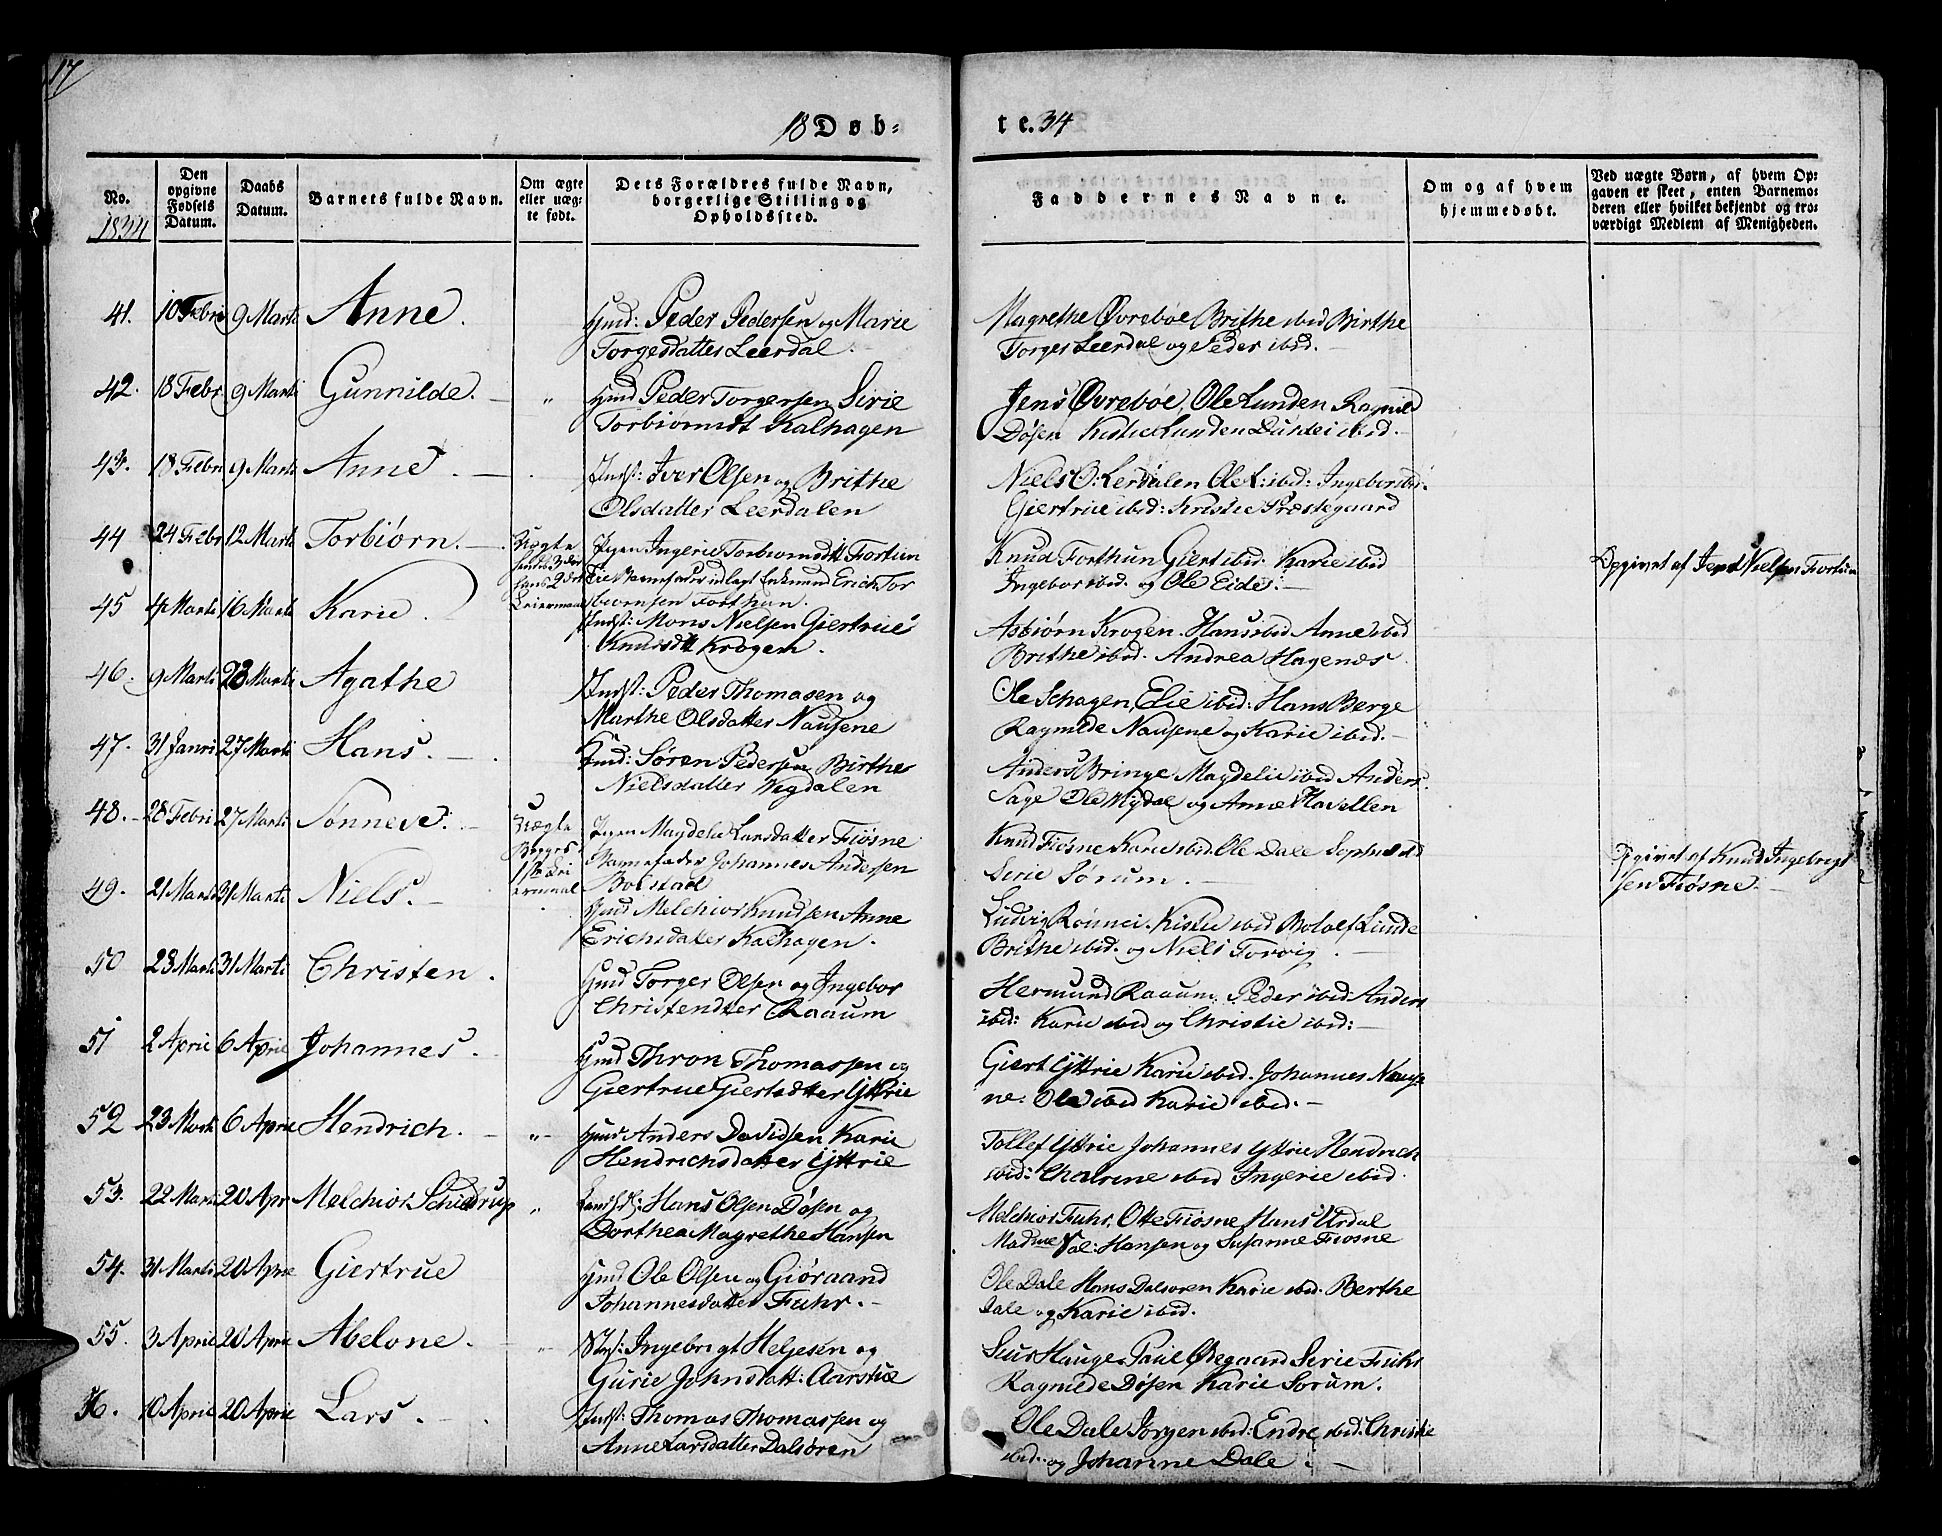 17
18 Døb-
te. 34
No.
1834
Den opgivne Fødsels Datum.
Daabs Datum.
Barnets fulde Navn.
Om ægte eller uægte født.
Dets Forældres fulde Navn, borgerlige Stilling og Opholdssted.
Faddernes Navne.
Om og af hvem hjemmedøbt.
Ved uægte Børn, af hvem Opgaven er skeet, enten Barnemoderen eller hvilket bekjendt og troværdigt Medlem af Menigheden.
41. 10 Febri 9 Marti Anne.
Gmd: Peder Pedersen og Marie
Torgesdatter Leerdal.
Magrethe Øvrebøe Brithe ibid Birthe
Torges Leerdal og Peder ibid.
42. 18 Febr 9 Marti Gunnilde. "
Gmd Peder Torgersen Sirie
Torbiørnsdt Kalhagen
Jens Øvrebøe, Ole Lunden Ragnild
Døsen Kistie Lunden ibid.
43. 18 Febri 9 Marti Anne.
Indst: Iver Olsen og Brithe
Olsdatter Leerdalen
Niels O: Lerdalen Ole L: ibid: Ingebor ibid.
Giertrue ibid: Kristie Præstegaard
44 24 Febr 12 Marti Torbiørn.
Uægte
hendes 3die
hans 2det
Leiermaal
Pigen Ingerie Torbiørnsdtt Fortun
Barnefader udlagt Enkmand Erich Tor
biørnsen Forthun.
Knud Forthun Giert ibid. Karie ibid
Ingebor ibid. og Ole Eide.
Opgivet af Jens Nielsen Fortun
45 4 Marti 16 Marti Karie.
Indst: Mons Nielsen Giertrue
Knudsdtt Krogen.
Asbiørn Krogen. Hans ibid Anne ibid
Brithe ibid. Andrea Hagenæs.
46. 9 Marti 23 Marti Agathe
Indst: Peder Thomasen og
Marthe Olsdatter Nausene
Ole Schagen, Elie ibid: Hans Berge
Ragnilde Nausene og Karie ibid.
47. 31 Janri 27 Marti Hans.
Gmd: Søren Pedersen Birthe
Nielsdatter Vigdalen
Anders Bringe Magdelie ibid Anders
Sage Ole Vigdal og Anne Havellen
48. 28 Febri 27 Marti Sønneve.
Uægte
Begges
1ste Lei
ermaal
Pigen Magdelie Larsdatter Fiøsne
Barnefader Johannes Andersen
Bolstad
Knud Fiøsne Karie ibid. Ole Dale
Sirie Sørum.
Opgivet af Knud Ingebrigt
sen Fiøsne.
49. 21 Marti 31 Marti Niels.
Gmd Melchior Knudsen Anne
Erichsdatter Kalhagen.
Ludvig Rønnei. Kistie ibid Botolf Linde
Brithe ibid. og Niels Torvig.
50 23 Marti 31 Marti Christen.
Gmd Torger Olsen og Ingebor
Christensdtter Raaum
Hermund Raaum. Peder ibid: Anders
ibid: Karie ibid og Christie ibid:
51 2 April 6 April Johannes.
Gmd Thron Thomassen og
Giertrue Giertsdtter Yttrie
Giert Yttrie Karie ibid. Johannes Nauss
ne. Ole ibid Karie ibid.
52 23 Marti 6 April Hendrich. "
Gmd Anders Davidsen Karie
Hendrichsdatter Yttrie
Tollef Yttrie Johannes Yttrie Hendrich
ibid: Chatrine ibid Ingerie ibid.
53. 22 Marti 20 Apr Melchior Schieldrup "
Hans Olsen Døsen og
Dorthea Magrethe Hansen
Melchior Fuhr, Otte Fiøsne Hans Urdal
Madme Hansen og Susanne Fiøsne
54. 31 Marti 20 Aprie Giertrue
Gmd Ole Olsen og Giøraand
Johannesdatter Fuhr.
Ole Dale Hans Dalsøren Karie ibid. Berthe
Dale og Karie ibid.
55. 3 April 20 April Abelone. "
Inst: Ingebrigt Heljesen og
Gurie Johnsdatt: Aarstue
Siur Hauge. Paul Ødegaard Sirie Fuhr
Ragnilde Døsen Karie Sorum.
56. 10 April 20 April Lars.
Indst: Thomas Thomassen og
Anne Larsdatter Dalsøren
Ole Dale Jørgen ibid: Endre ibid: Christie
ibid. og Johanne Dale.